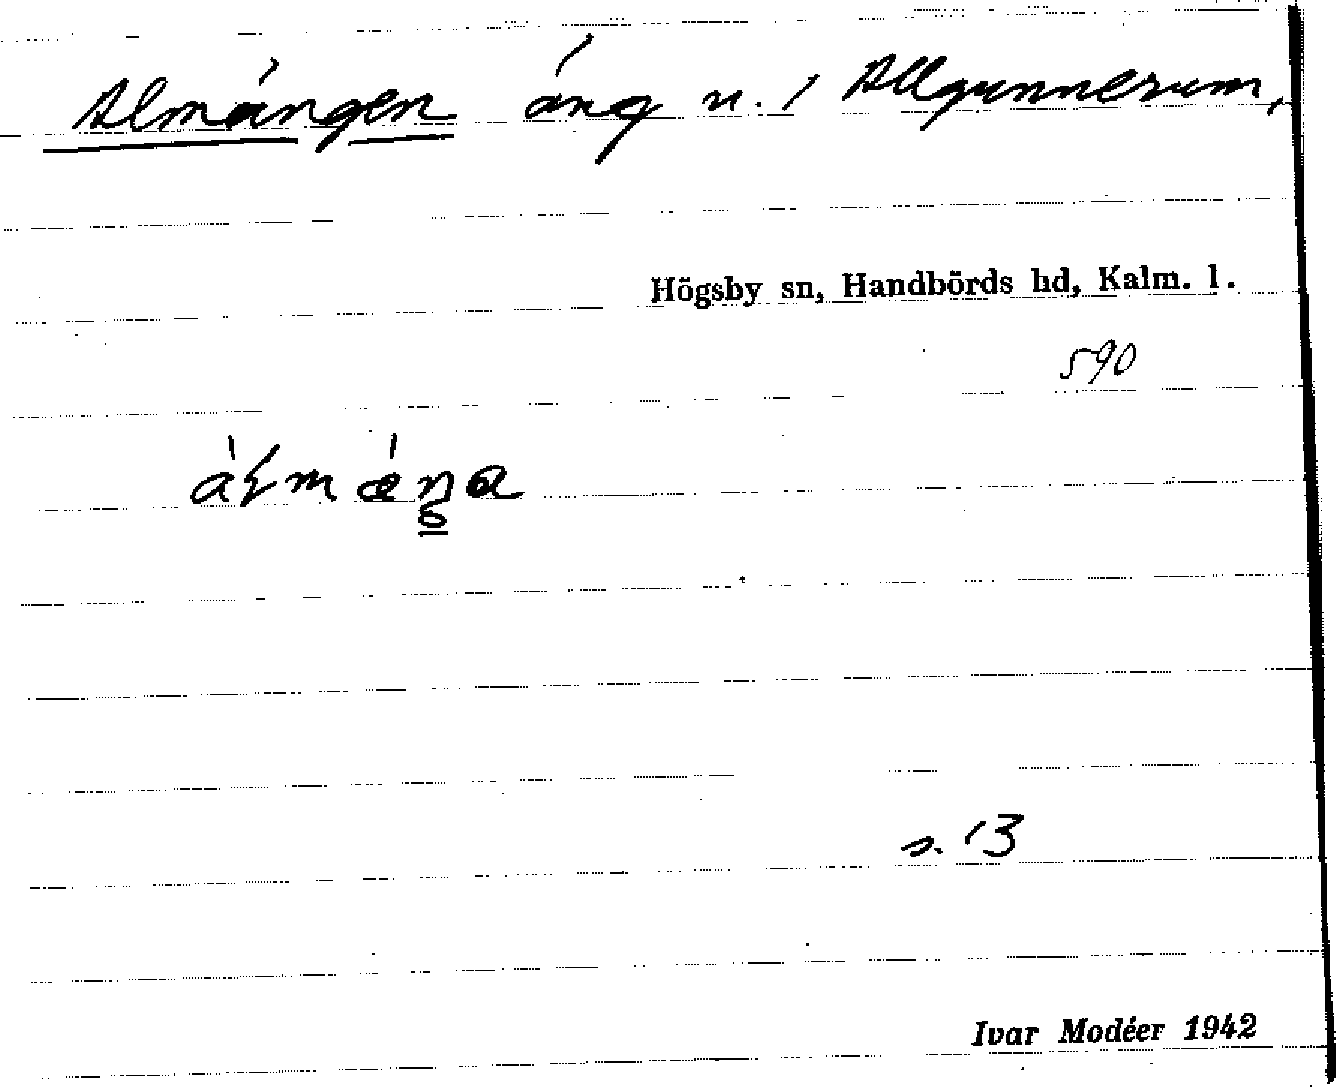 Almängen äng n. / Allgunnerum,
Högsby sn, Handbörds hd, Kalm. l.
590
s. 13
Ivar Modéer 1942